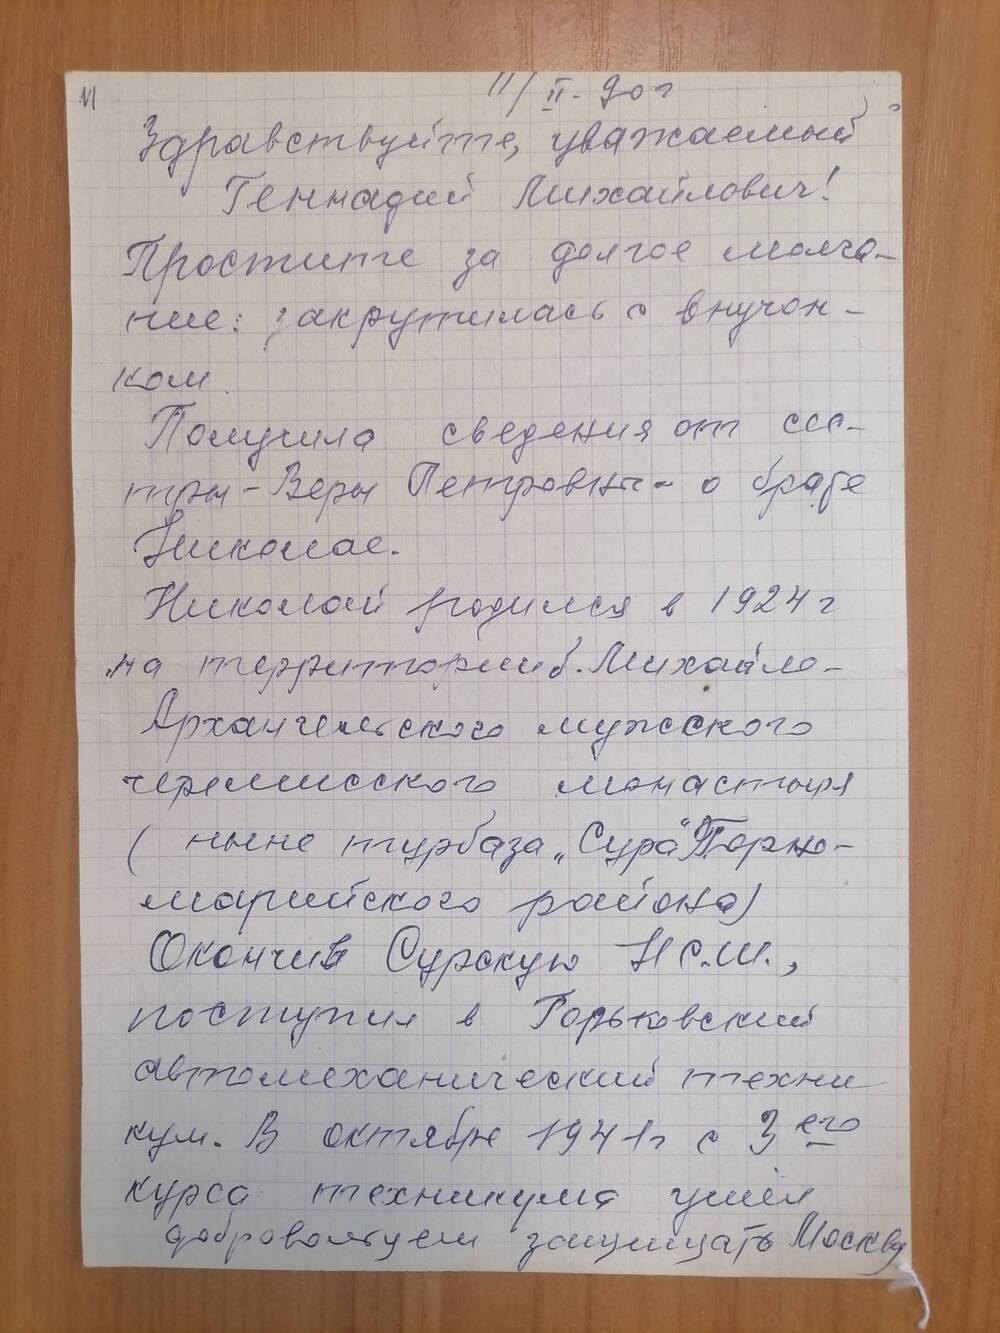 11/II-90г
Здравствуйте, уважаемый
Геннадий Михайлович!
Простите за долгое молча-
ние: закрутилась с внучон-
ком.
Получила сведения от сес-
тры - Веры Петровны - о брате
Николае.
Николай родился в 1924 г
на территории б. Михайло-
Архангельского мужского
черемисского монастыря
( ныне турбаза „Сура" Горно-
марийского района)
Окончив Сурскую НС.Ш.,
поступил в Горьковский
автомеханический техни
кум. В октябре 1941г с 3его
курса техникума ушёл
добровольцем защищать Москву